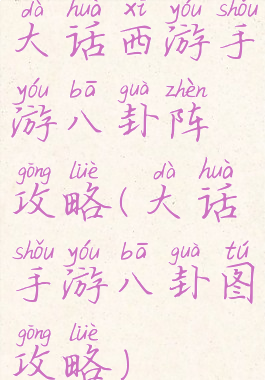 dà huà xī yóu shǒu
大话西游手
yóu bā guà zhèn
游八卦阵
gōng lüè dà huà
攻略(大话
shǒu yóu bā guà tú
手游八卦图
gōng lüè
攻略)